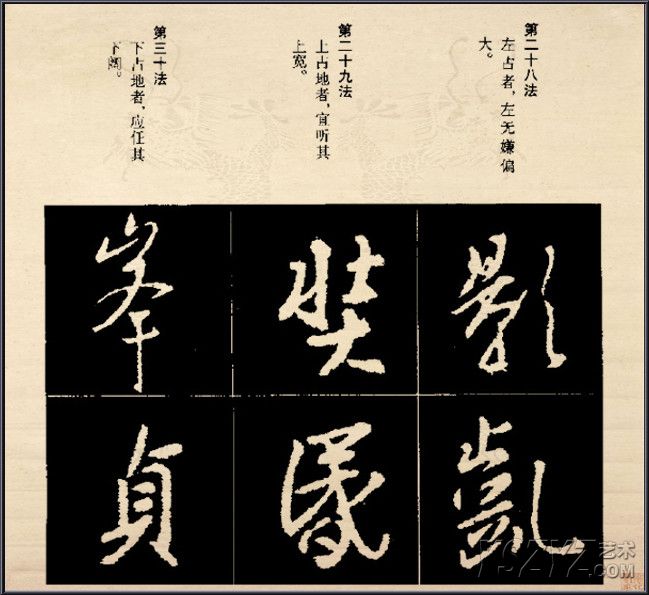 第二十八法
左占者，左无嫌偏
大。
第二十九法
上占地者，宜听其
上宽。
第三十法
下占地者，应任其
下阔。
影
凱
奘
峯
貞
YSZYZ艺术
.COM